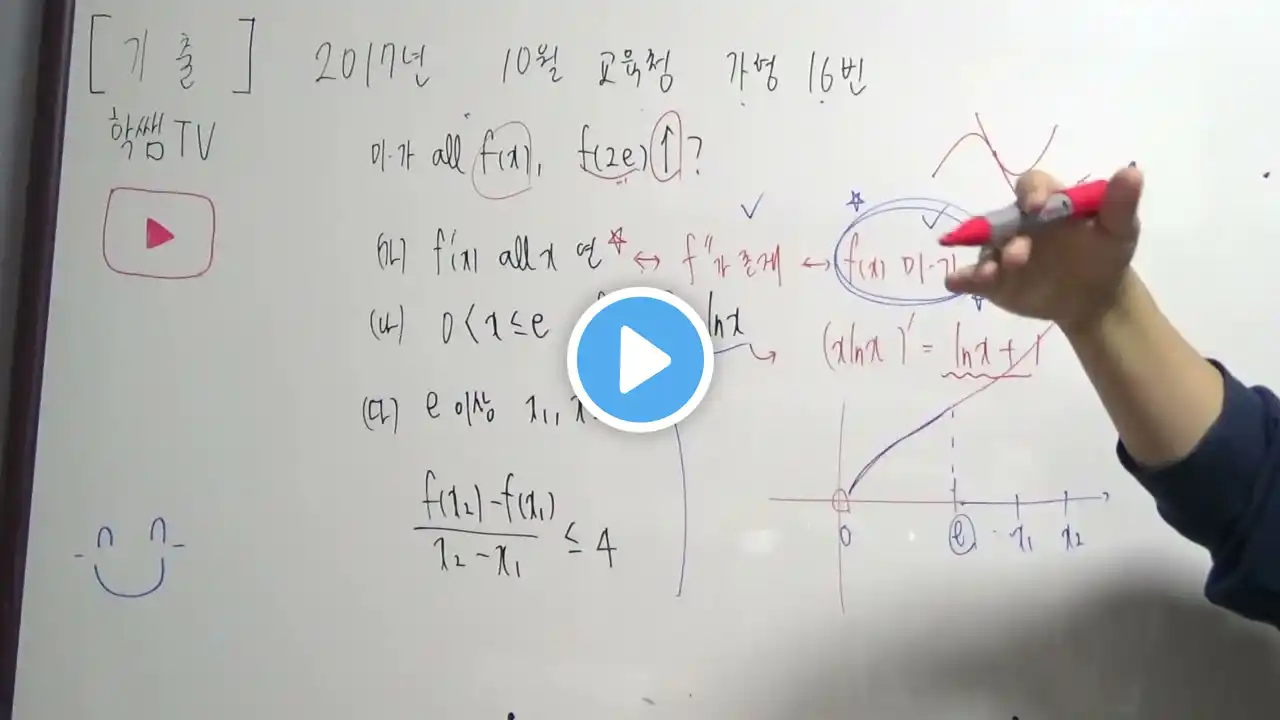 [ 기 출 ] 2017년 10월 교육청 가형 16번
학쌤TV
미.가 all f(x), f(2e) ↑ ?
(가) f'(x) all x 연 ☆ ↔ f''가 존재 ↔ f(x) 미.가
(나) 0 < x ≤ e lnx
(xlnx)' = lnx + 1
(다) e 이상 x₁,
f(x₂) - f(x₁)
x₂ - x₁
≤ 4
0 e x₁ x₂